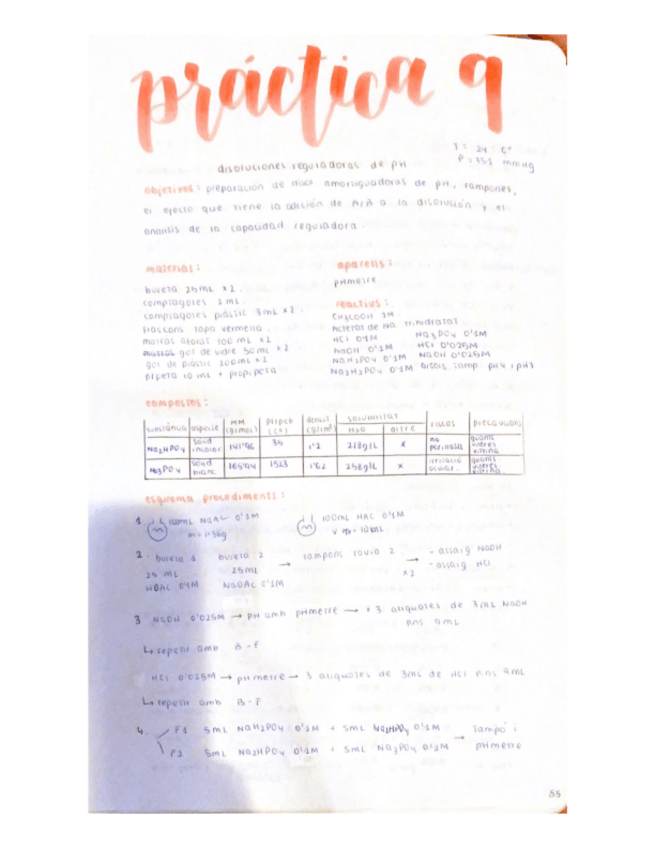 práctica 9
T = 24 Cº
P = 751 mmHg
disoluciones reguladoras de pH
objetivos: preparación de amortiguadoras de pH, tampones,
el efecto que tiene la adición de a la disolución y el
analisis de la capacidad reguladora
material:
bureta 25mL x2
comptagotes 1 mL.
comptagotes plàstic 3mL x2
flascons tapa vermella
matràs aforat 100 mL x2
got de vidre 50mL x2
got de plàstic 100mL x2
pipeta 10 mL + propipeta
aparells:
pHmetre
reactius:
CH3COOH 1M
Acetat de Na trihidratat
HCl 0'1M Na3PO4 0'1M
NaOH 0'1M HCl 0'025M
NaH2PO4 0'1M NaOH 0'025M
Na2H2PO4 0'1M Dissols. Tamp. pH4 i pH7
compostos:
substància espècie MM (g/mol) (Cº) densit (g/cm³) solubilitat H2O altre riscos precaucions
Na2HPO4 sòlid incolor 141'96 35 1'2 218g/L x no perillosa guants ulleres vitrina
Na3PO4 sòlid blanc 1523 1'62 258g/L x irritació ocular. guants ulleres vitrina
esquema procediment:
1. 100mL NaAc 0'1M 100mL HAc 0'1M
m = 1'36g V = 10mL
2. bureta 1 bureta 2 → tampons 2 → - assaig NaOH
25 mL 25mL x2 - assaig HCl
0'1M 0'1M
3 NaOH 0'025M → pH amb pHmetre → 3 alíquotes de 3mL NaOH
fins 9mL
↳ repetir amb B - F
HCl 0'025M → pHmetre → 3 alíquotes de 3mL de HCl fins 9mL
↳ repetir amb B - F
4. F1 5mL NaH2PO4 0'1M + 5mL Na2HPO4 0'1M → Tampó i
F2 5mL Na2HPO4 0'1M + 5mL Na3PO4 0'1M pHmetre
55